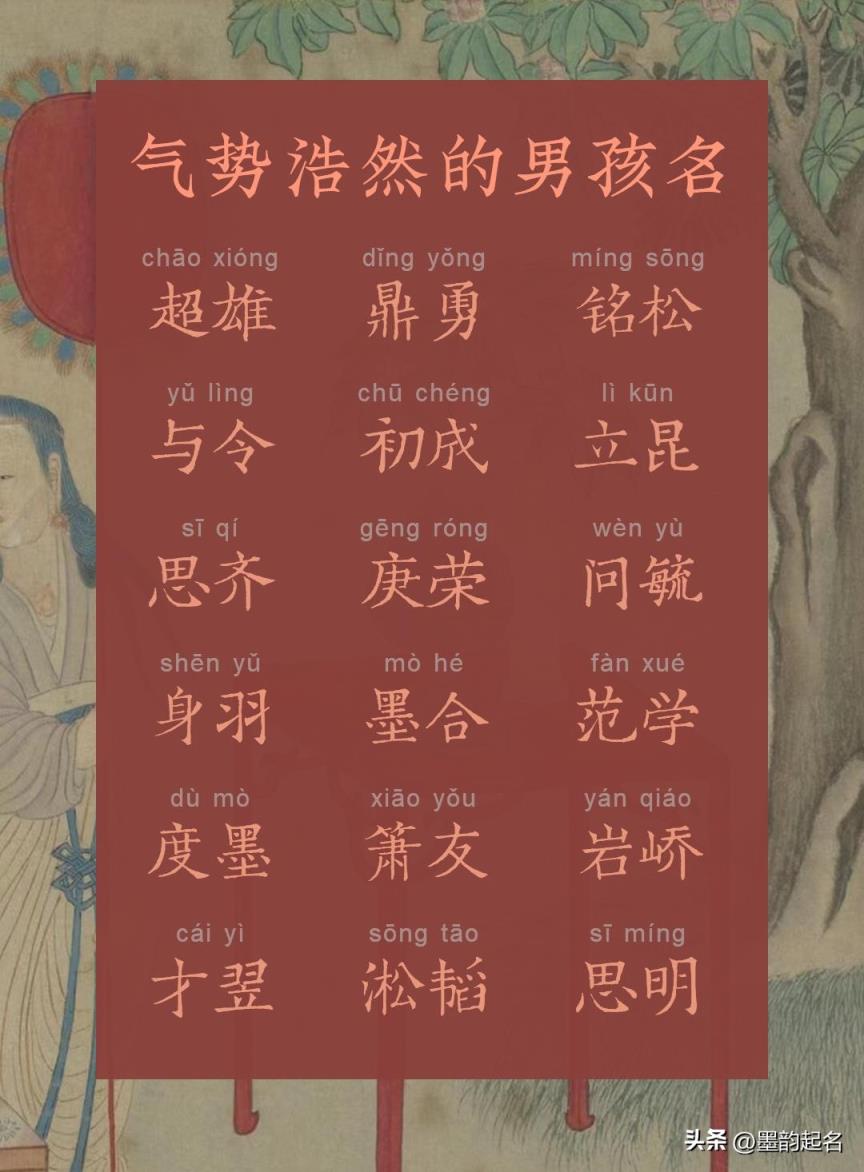 气势浩然的男孩名
chāo xióng dǐng yǒng míng sōng
超雄 鼎勇 铭松
yǔ lìng chū chéng lì kūn
与令 初成 立昆
sī qí gēng róng wèn yù
思齐 庚荣 问毓
shēn yǔ mò hé fàn xué
身羽 墨合 范学
dù mò xiāo yǒu yán qiáo
度墨 箫友 岩峤
cái yì sōng tāo sī míng
才翌 淞韬 思明
头条 @墨韵起名